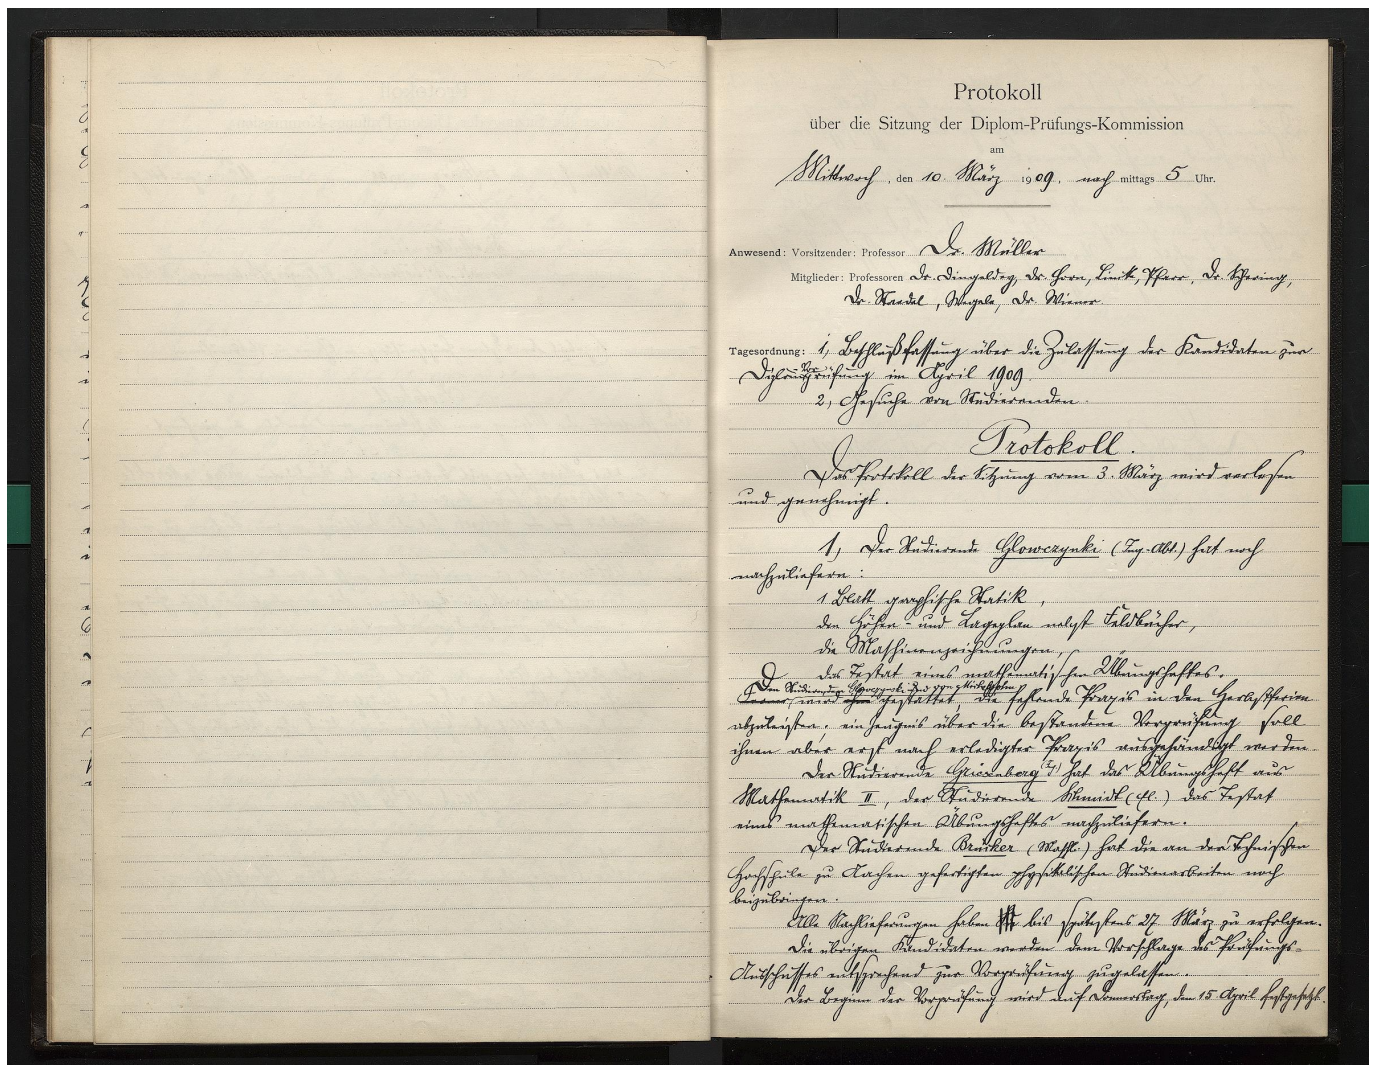 Protokoll
über die Sitzung der Diplom-Prüfungs-Kommission
am
Mittwoch, den 10. März 1909, nachmittags 5 Uhr.
Anwesend: Vorsitzender: Professor Dr. Müller
Mitglieder: Professoren Dr. Dingeldey, Dr. Horn, Linck, Pfarr, Dr. Schering,
Dr. Staedel, Wegele, Dr. Wiener.
Tagesordnung: 1, Beschlußfassung über die Zulassung der Kandidaten zur
Diplomvorprüfung im April 1909.
2, Gesuche von Studierenden.
Protokoll.
Das Protokoll der Sitzung vom 3. März wird verlesen
und genehmigt.
1, Der Studierende Glowczynki (Ing.-Abt.) hat noch
nachzuliefern:
1 Blatt graphische Statik,
den Höhen- und Lageplan nebst Feldbücher,
die Maschinenzeichnungen,
das Testat eines mathematischen Übungsheftes.
Den Studierenden
wird gestattet, die fehlende Praxis in den Herbstferien
abzuleisten; ein Zeugnis über die bestandene Vorprüfung soll
ihnen aber erst nach erledigter Praxis ausgehändigt werden.
Der Studierende hat das Übungsheft aus
Mathematik II, der Studierende Schmidt (El.) das Testat
eines mathematischen Übungsheftes nachzuliefern.
Der Studierende Brücker (Masch.) hat die an der Technischen
Hochschule zu Aachen gefertigten physikalischen Studienarbeiten noch
beizubringen.
Alle Nachlieferungen haben bis spätestens 27. März zu erfolgen.
Die übrigen Kandidaten werden dem Vorschlage des Prüfungs-
Ausschusses entsprechend zur Vorprüfung zugelassen.
Der Beginn der Vorprüfung wird auf Donnerstag, den 15. April festgesetzt.